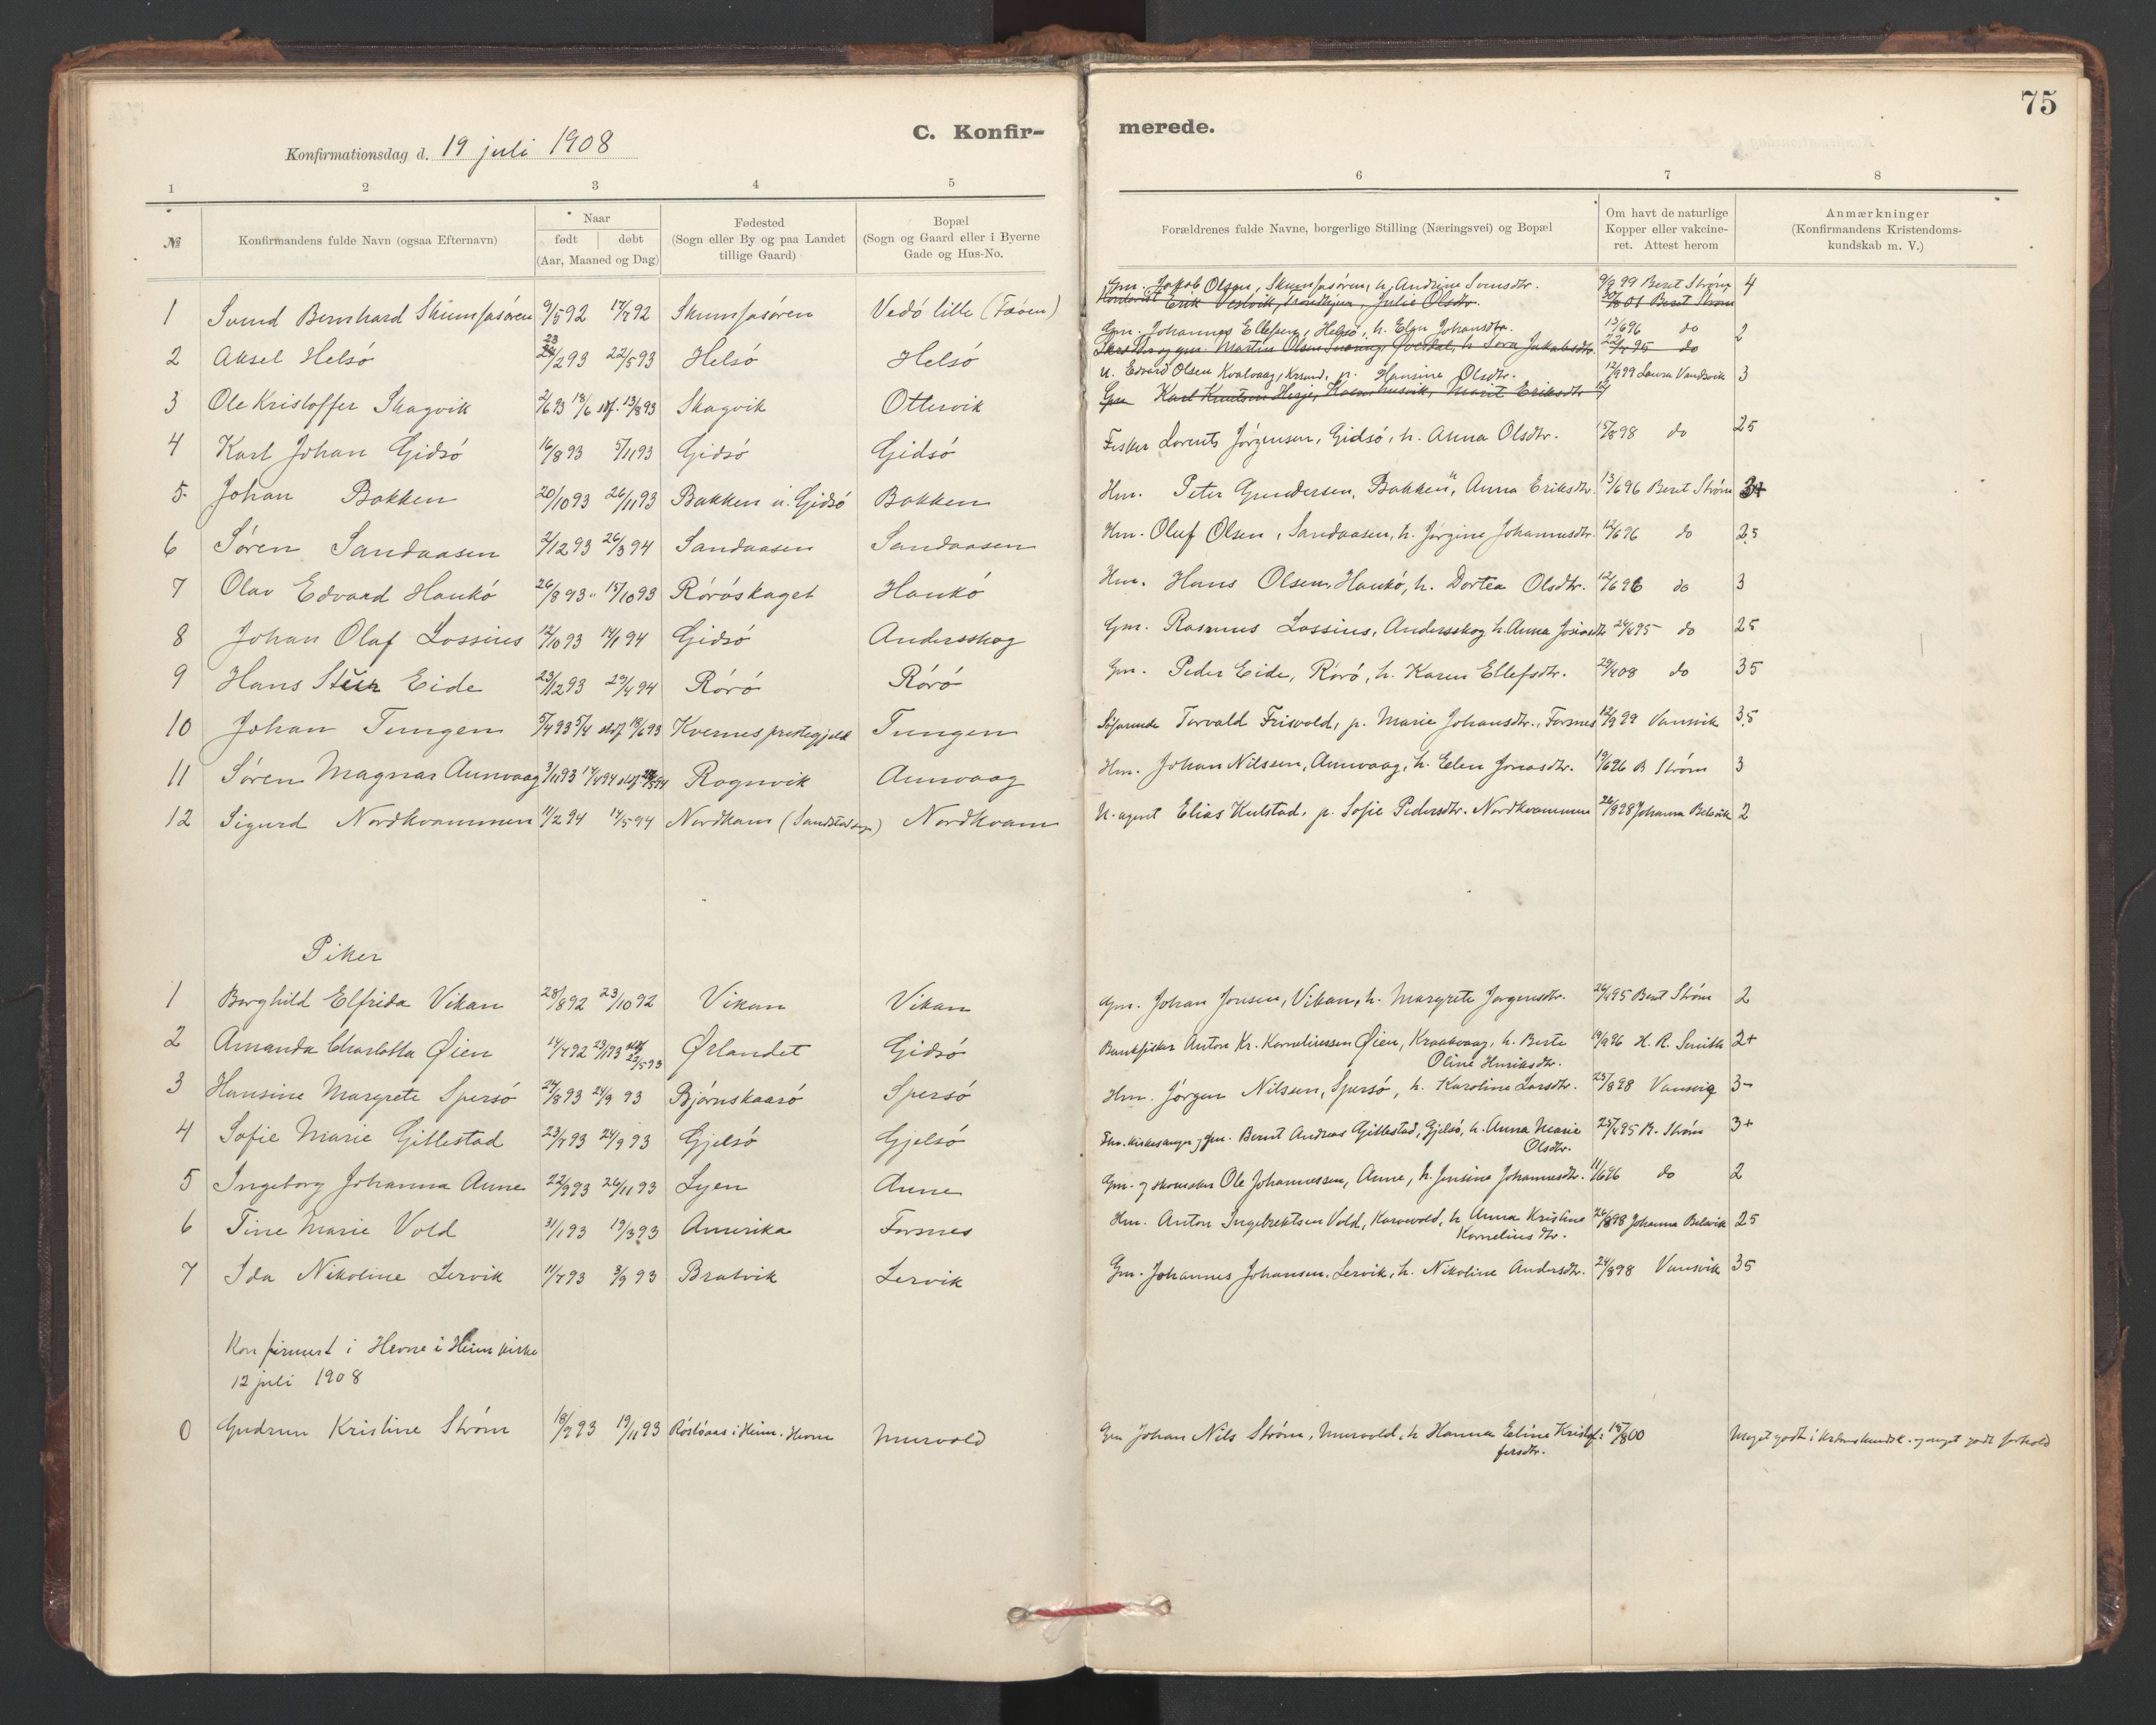 75
C. Konfir- merede.
Konfirmationsdag d. 19 juli 1908
1 2 3 4 5 6 7 8
№ Konfirmandens fulde Navn (ogsaa Efternavn) Naar født døbt (Aar, Maaned og Dag) Fødested (Sogn eller By og paa Landet tillige Gaard) Bopæl (Sogn og Gaard eller i Byerne Gade og Hus-No. Forældrenes fulde Navne, borgerlige Stilling (Næringsvei) og Bopæl Om havt de naturlige Kopper eller vakcineret. Attest herom Anmærkninger (Konfirmandens Kristendomskundskab m. V.)
1 Svend Bernhard Skumfasøren 9/5 92 17/7 92 Skumfasøren Vedö lille (Faöen) Gm. Jakob Olsen, Skumfasøren, h. Andrine 9/9 99 Berit Strøm 4
Erik Vestvik, Trondhjem, Julie Olsdtr. 01 Berit Strøm
2 Aksel Helsö 23/2 93 22/5 93 Helsö Helsö Gm. Johannes Ellefsen, Helsö, h. Elen Johansdtr. 13/6 96 do 2
gm. Martin Olsen h. Jakobsdtr. 95 do
3 Ole Kristoffer Skagvik 2/6 93 18/6 stf. 13/8 93 Skagvik Ottervik U. Edvard Olsen Kvalvaag, Krsund, p. Hansine Olsdtr. 12/9 99 Laura Vandsvik 3
Gm Karl Knutsen Marit Eriksdtr
4 Karl Johan Gidsö 16/8 93 5/11 93 Gidsö Gidsö Fisker Lorents Jörgensen, Gidsö, h. Anna Olsdtr. 15/8 98 do 25
5. Johan Bakken 20/10 93 26/11 93 Bakken u. Gidsö Bakken Hm. Peter Gundersen, Bakken, Anna Eriksdtr. 13/6 96 Berit Strøm 3+
6 Søren Sandaasen 2/12 93 26/3 94 Sandaasen Sandaasen Hm. Oluf Olsen, Sandaasen, h. Jørgine Johannesdtr. 12/6 96 do 2.5
7 Olav Edvard Haukö 26/8 93 15/10 93 Röröskaget Haukö Hm. Hans Olsen, Haukö, h. Dortea Olsdtr. 12/6 96 do 3
8 Johan Olaf Lossius 12/10 93 14/1 94 Gidsö Andersskog Gm. Rasmus Lossius, Andersskog h. Anna 24/4 95 do 25
9 Hans Eide 23/12 93 29/4 94 Rörö Rörö Gm. Peder Eide, Rörö, h. Karen Ellefsdtr. 29/4 08 do 35
10 Johan Tungen 5/4 93 5/4 stf 18/6 93 Kvernes prestegjeld Tungen Söfarende Torvald Frisvold, p. Marie Johansdtr., Forsnes 12/9 99 Vansvik 3.5
11 Søren Magnar Aunvaag 3/11 93 17/4 94 stf 94 Ragnvik Aunvaag Hm. Johan Nilssen, Aunvaag, h. Elen Jonasdtr. 19/6 96 B Strøm 3
12 Sigurd Nordkvammen 11/2 94 14/5 94 Nordkam (Sandstad sogn) Nordkvam U. agent Elias Kulstad, p. Sofie Pedersdtr. Nordkvammen 26/8 98 Johanna Belsvik 2
Piker
1 Borghild Elfrida Vikan 28/8 92 23/10 92 Vikan Vikan Gm. Johan Jonsen, Vikan, h. Margrete Jørgensdtr. 24/4 95 Berit Strøm 2
2 Amanda Charlotta Øien 14/7 92 29/1 93 stf 23/5 93 Ørlandet Gidsö Bankfisker Anton Kr. Korneliussen Øien, Kraakvaag, h. Berte 19/9 96 H. R. Smith 2+
Oline Henriksdtr.
3 Hansine Margrete Spersö 24/8 93 24/9 93 Bjørnskaarö Spersö Hm. Jörgen Nilssen, Spersö, h. Karoline Larsdtr. 25/8 98 Vansvig 3-
4 Sofie Marie Gillestad 23/7 93 24/9 93 Gjelsö Gjelsö Fhv. kirkesanger og gm. Bernt Andreas Gillestad, Gjelsö, h. Anna Marie 25/4 95 B. Strøm 3+
Olsdtr.
5 Ingeborg Johanna Aune 22/9 93 26/11 93 Lyen Aune Gm. og skomaker Ole Johannessen, Aune, h. Jensine Johannesdtr. 11/6 96 do 2
6 Tine Marie Vold 31/1 93 19/3 93 Amerika Forsnes Hm. Anton Ingebrektsen Vold, Korsvold, h. Anna Kristine 26/8 98 Johanna Belsvik 25
Kornelius dtr.
7 Ida Nikoline Lervik 11/7 93 3/9 93 Bratvik Lervik Gm. Johannes Johansen, Lervik, h. Nikoline Andersdtr. 24/8 98 Vansvik 35
Konfirmert i Hevne i Heim kirke
12 juli 1908
0 Gudrun Kristine Strøm 18/9 93 19/11 93 Röstöaas i Heim. Hevne Murvold Gm Johan Nils Strøm, Murvold, h Hanna Eline Kristof- 15/8 00 Meget godt i kr.domskundsk. og meget godt forhold
fersdtr.